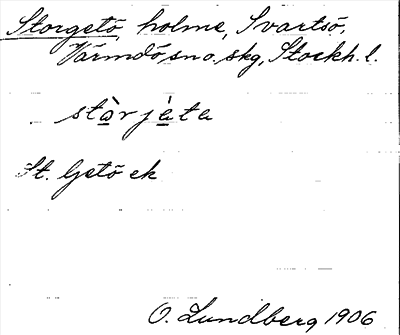 Storgetö, holme, Svartsö,
Värmdö, sn o. skg, Stockh. l.
stàrjàta
St. Getö ek
O. Lundberg 1906